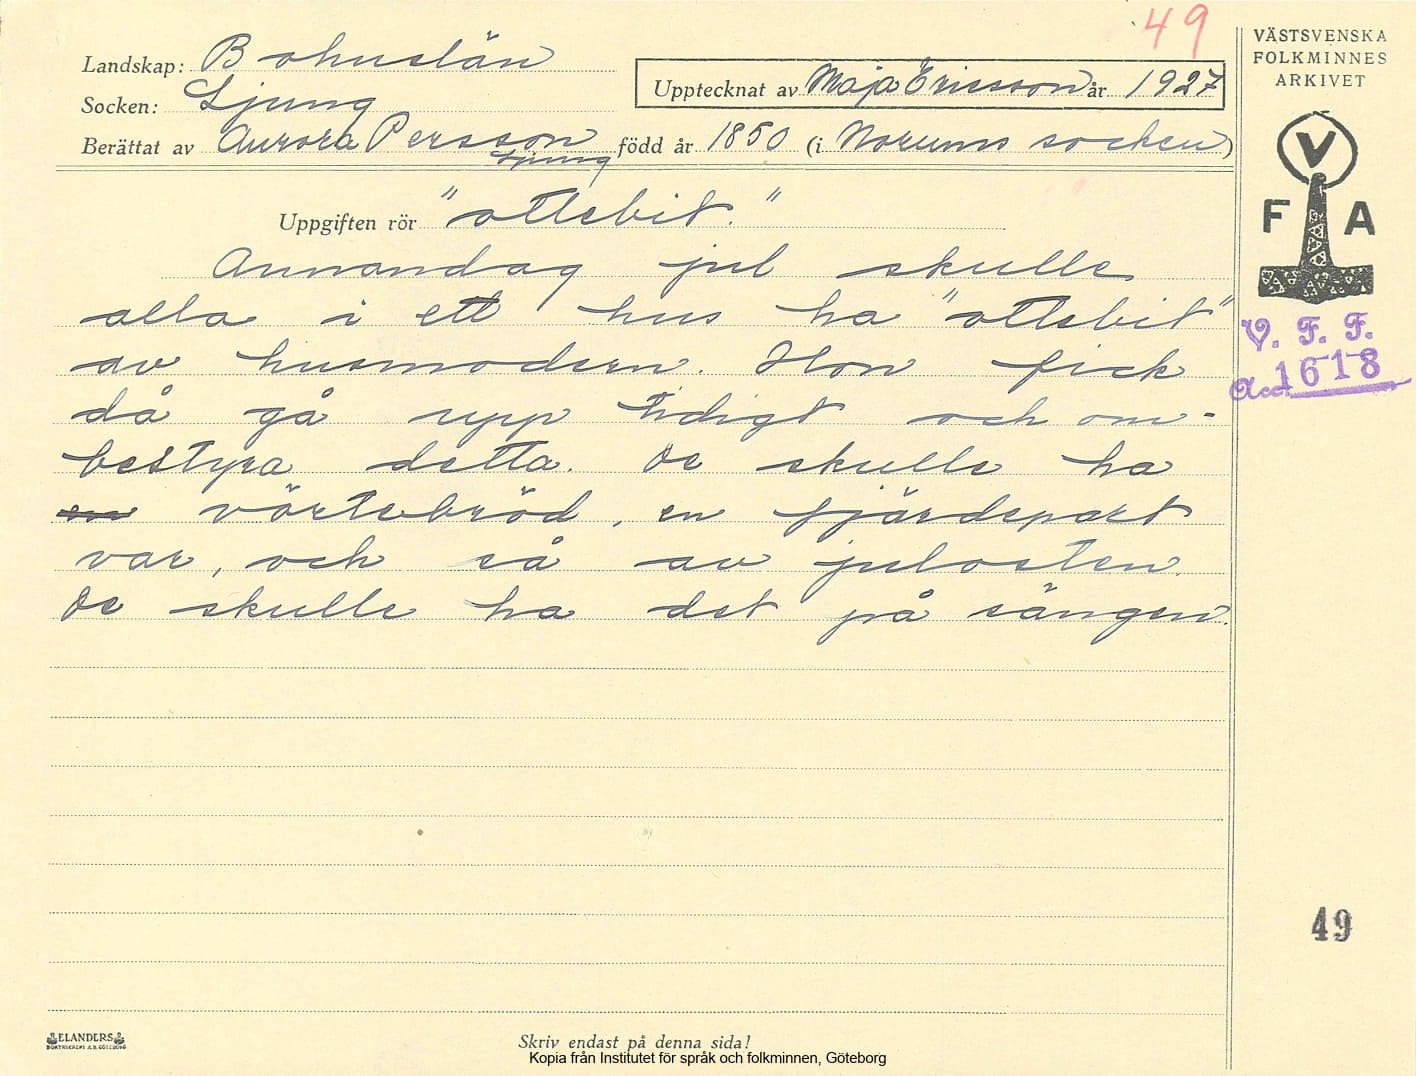 49
VÄSTSVENSKA
FOLKMINNES
ARKIVET
Landskap: Bohuslän
Upptecknat av Maja Ericsson år 1927
Socken: Ljung
Berättat av Aurora Persson född år 1850 (i Norums socken)
Ljung
V
F A
Uppgiften rör "ottebit."
Annandag jul skulle
alla i ett hus ha "ottebit"
av husmodern. Hon fick
då gå upp tidigt och om-
bestyra detta. De skulle ha
en vörtebröd, en fjärdepart
var, och så av julosten.
De skulle ha det på sängen.
V. F. F.
Acc. 1618
49
ELANDERS
BOKTRYCKERI A.B. GÖTEBORG
Skriv endast på denna sida!
Kopia från Institutet för språk och folkminnen, Göteborg